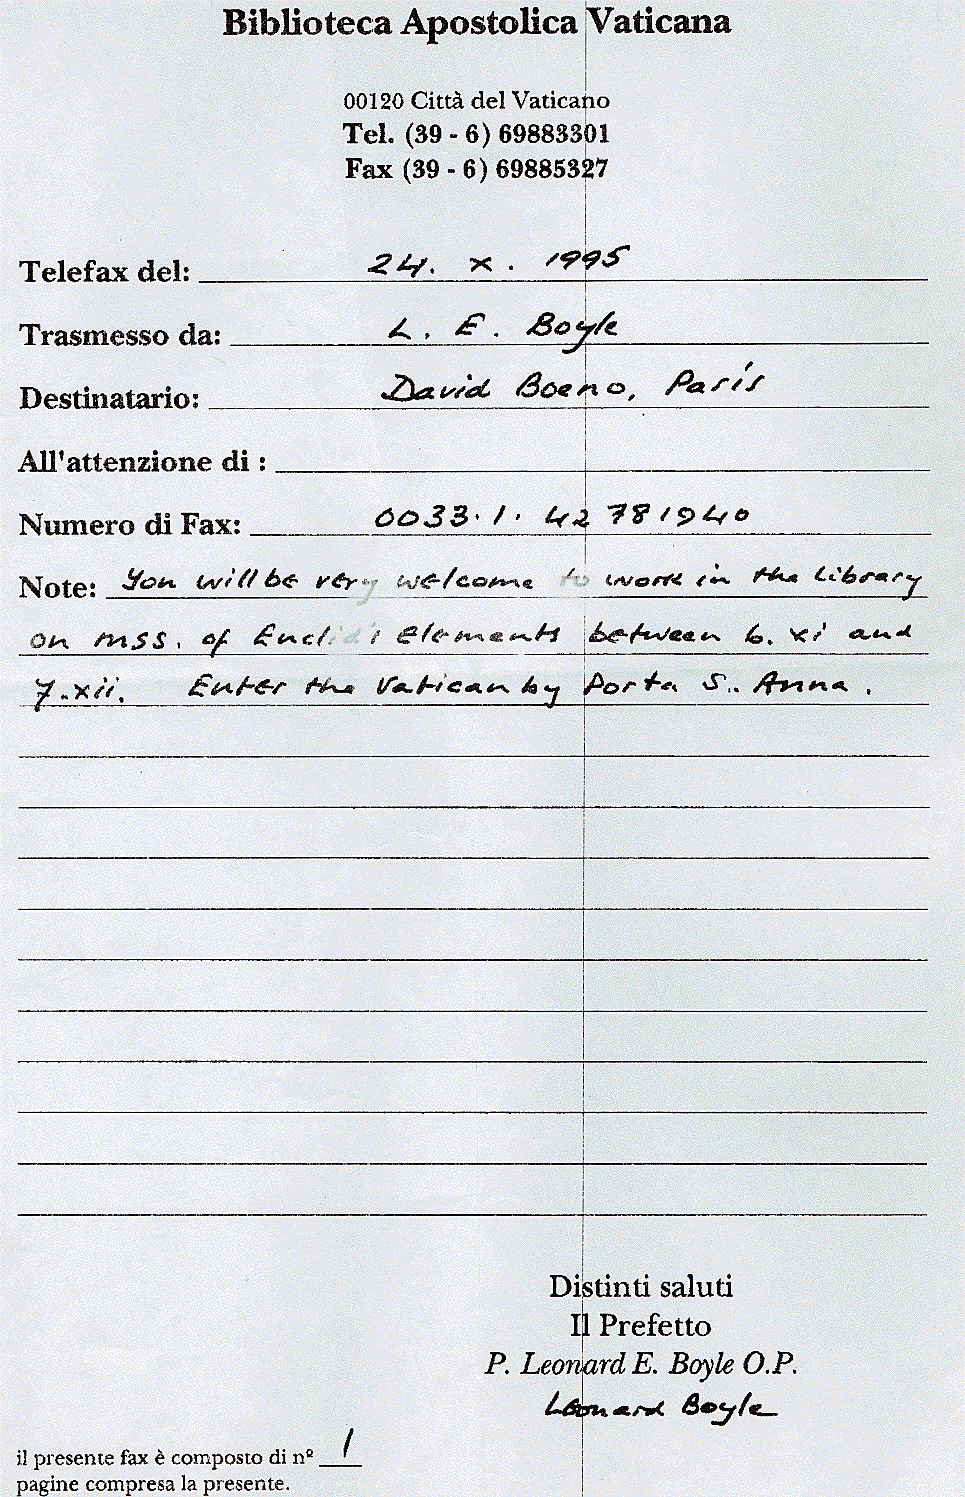 Biblioteca Apostolica Vaticana
00120 Città del Vaticano
Tel. (39 - 6) 69883301
Fax (39 - 6) 69885327
Telefax del: 24. x. 1995
Trasmesso da: L. E. Boyle
Destinatario: David Boeno, Paris
All'attenzione di :
Numero di Fax: 0033.1. 42 781940
Note: You will be very welcome to work in the Library
on mss. of Euclid's Elements between 6. xi and
7.xii. Enter the Vatican by Porta S. Anna.
Distinti saluti
Il Prefetto
P. Leonard E. Boyle O.P.
Leonard Boyle
il presente fax è composto di nº 1
pagine compresa la presente.